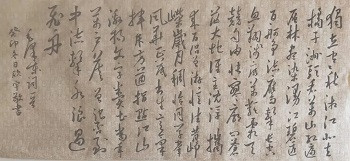 獨立寒秋湘江北去
橘子洲頭看萬山紅遍
層林盡染漫江碧透
百舸爭流鷹擊長空
魚翔淺底萬類霜天
競自由悵寥廓問蒼
茫大地誰主沉浮攜
來百侶曾遊憶往昔崢
嶸歲月稠恰同學少年
風華正茂書生意氣揮
斥方遒指點江山
激揚文字糞土當年
萬戶侯曾記否到
中流擊水浪遏
飛舟
毛澤東詞
癸卯冬日 書